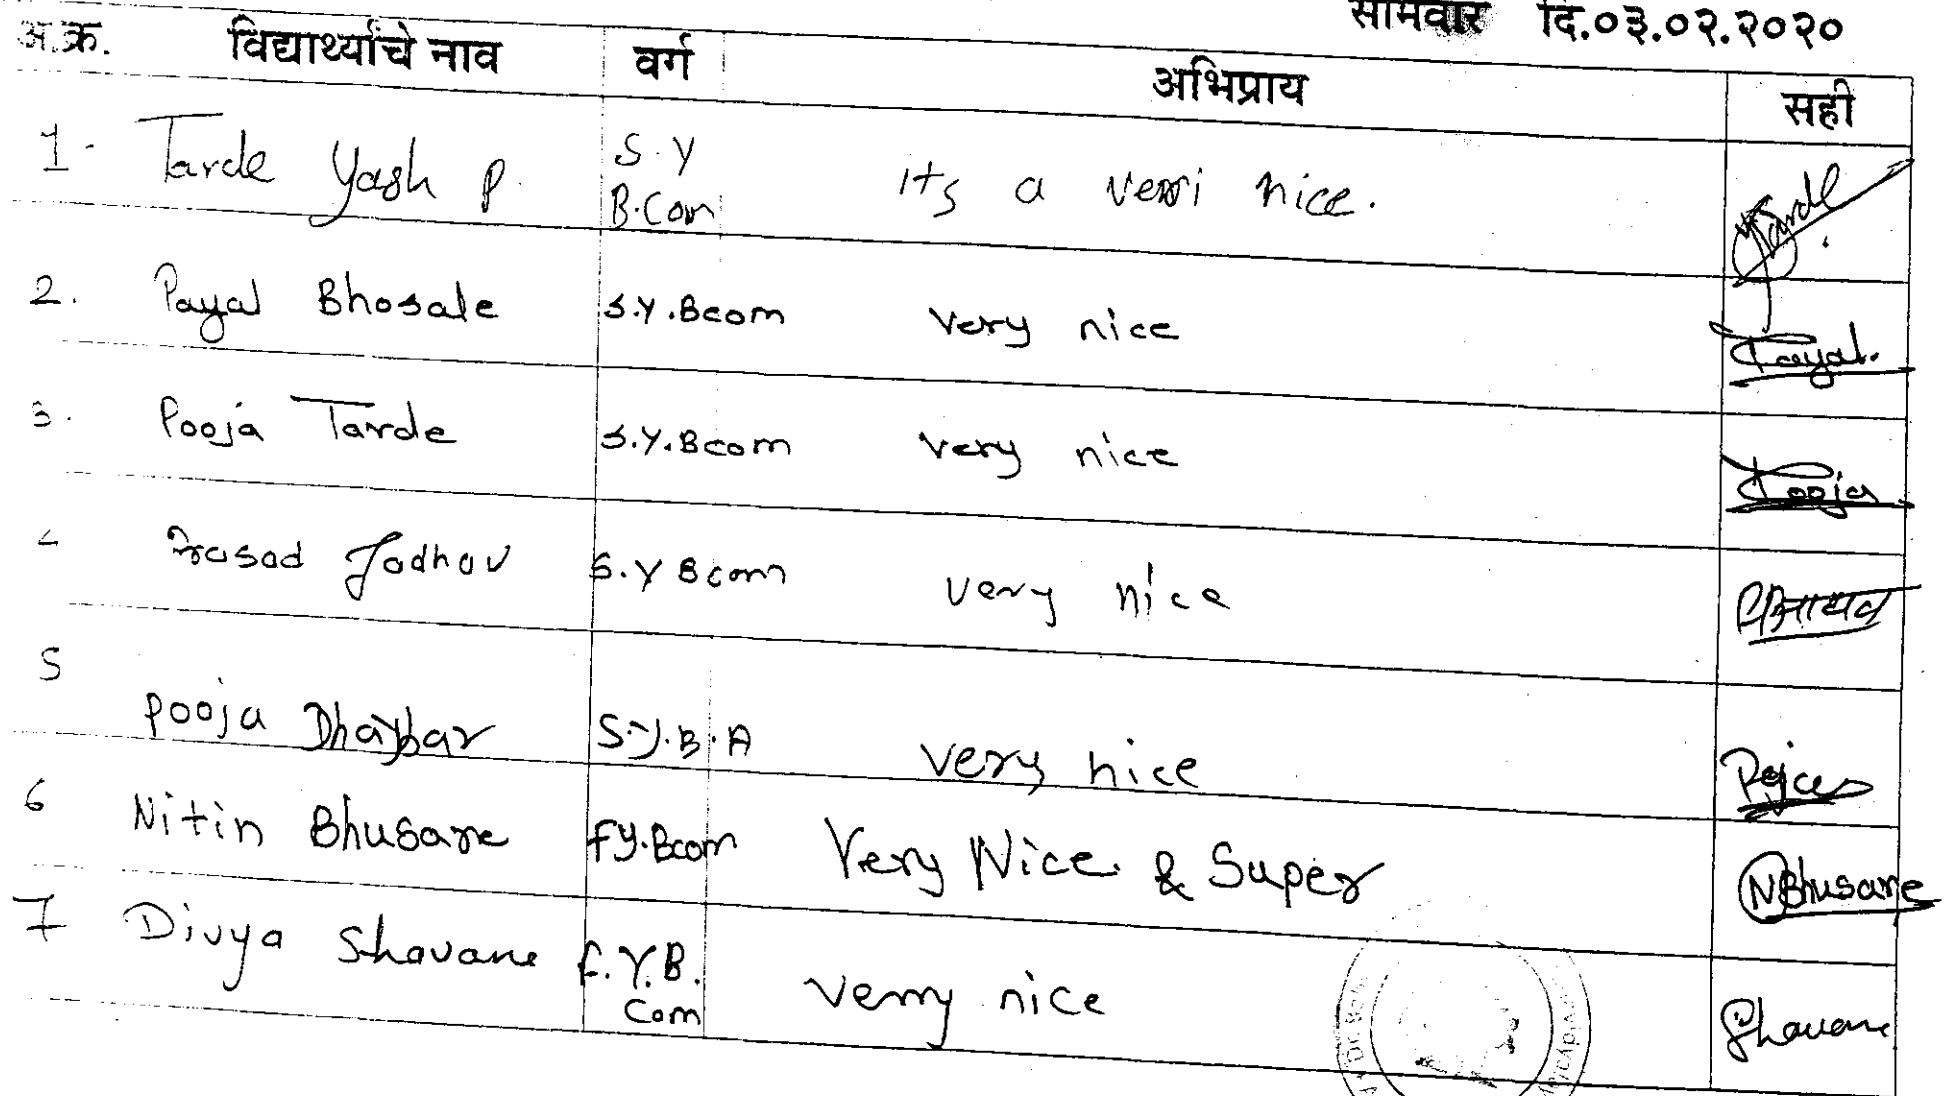 सोमवार दि.०३.०२.२०२०
अ.क्र. विद्यार्थ्यांचे नाव वर्ग अभिप्राय सही
1. Tarde Yash P. S.Y B.Com Its a verri nice. Tarde
2. Payal Bhosale S.Y.Bcom very nice Payal.
3. Pooja Tarde S.Y.Bcom very nice Pooja
Prasad Jadhav S.Y Bcom very nice
5 Pooja Dhaybar S.Y.B.A very nice
6 Nitin Bhusare F.Y.Bcom Very Nice & Super NBhusare
7 Divya Shavane F.Y.B. Com verry nice Shavane